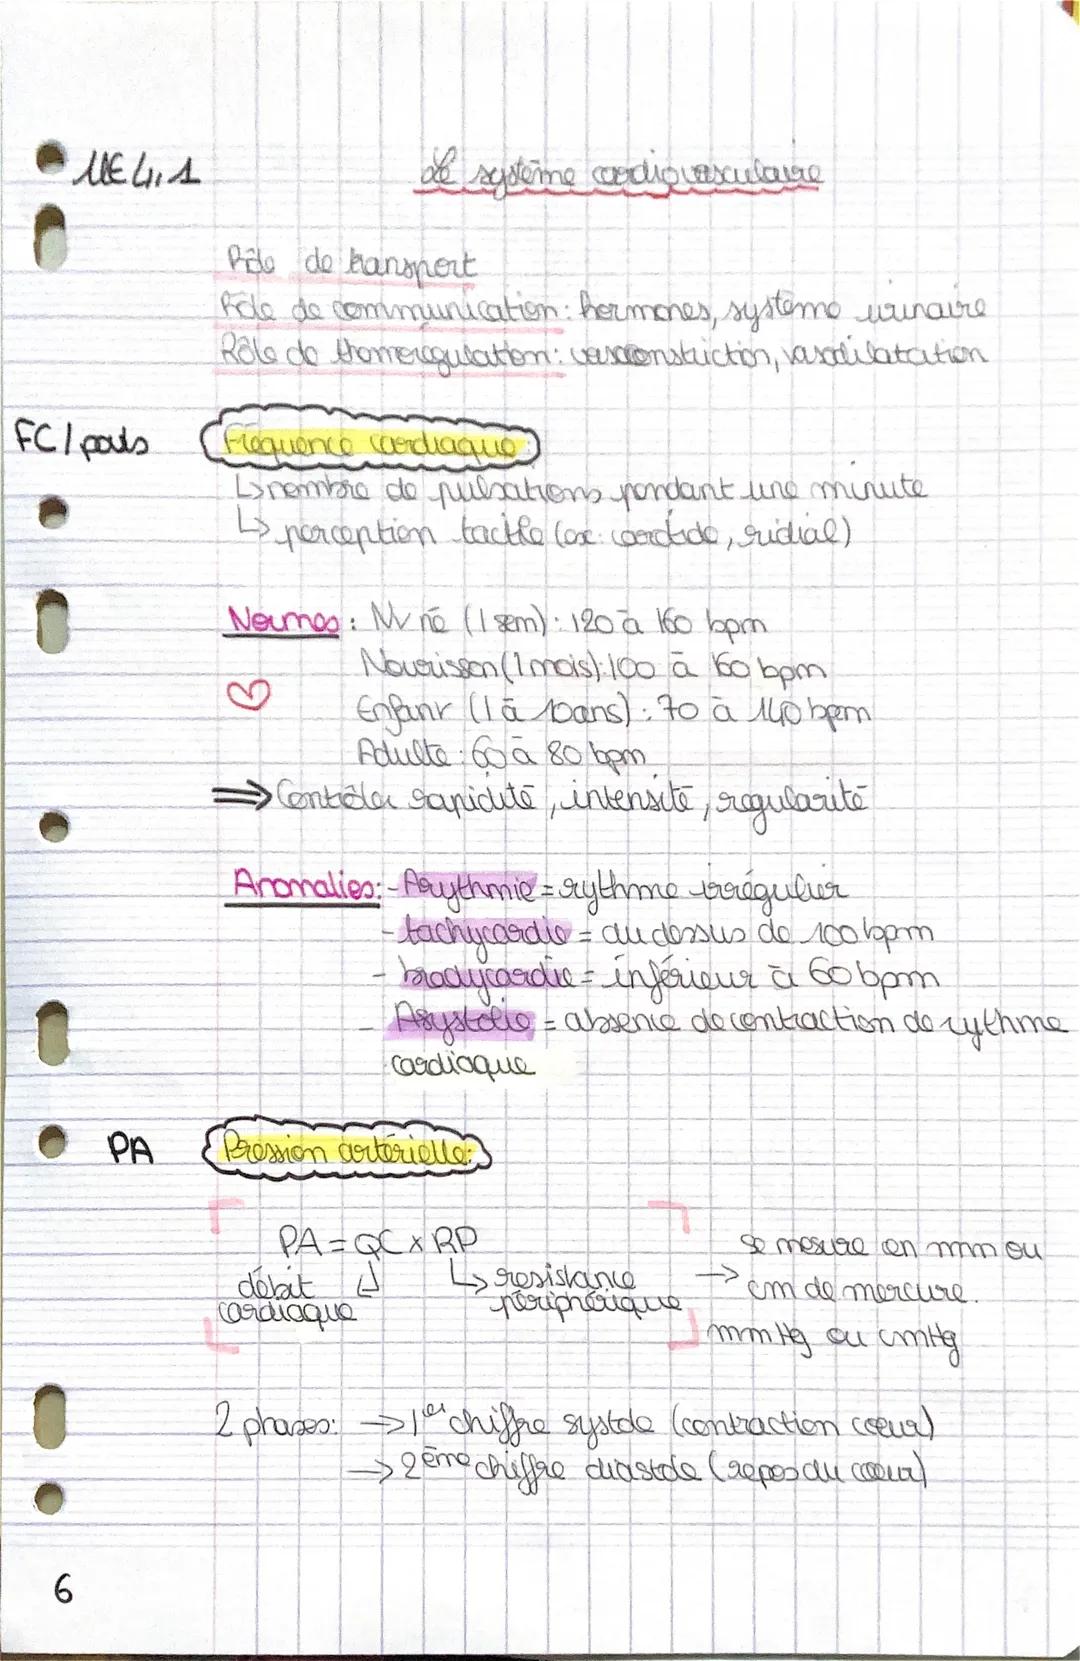 UE 4.1
Le système cardiovasculaire
Rôle de transport
Rôle de communication : hormones, système urinaire
Rôle de thomerégulation : vasconstriction, vasodilatation
FC / pouls
Fréquence cardiaque :
↳ nombre de pulsations pendant une minute
↳ perception tactile (ex: carotide, ridial)
Normes : Nv né (1 sem) : 120 à 160 bpm
Nourisson (1 mois) : 100 à 160 bpm
Enfant (1 à 10ans) : 70 à 140 bpm
Adulte : 60 à 80 bpm
⇒ Contrôler rapidité, intensité, régularité
Anomalies : - Arythmie = rythme irrégulier
- tachycardie = au dessus de 100 bpm
- bradycardie = inférieur à 60 bpm
- Asystolie = absence de contraction de rythme
cardiaque
PA
Pression artérielle :
PA = QC x RP
débit cardiaque ↲ ↳ resistance périphérique
→ se mesure en mm ou
cm de mercure.
mmHg ou cmHg
2 phases : → 1er chiffre systole (contraction coeur)
→ 2ème chiffre diastole (repos du coeur)
6